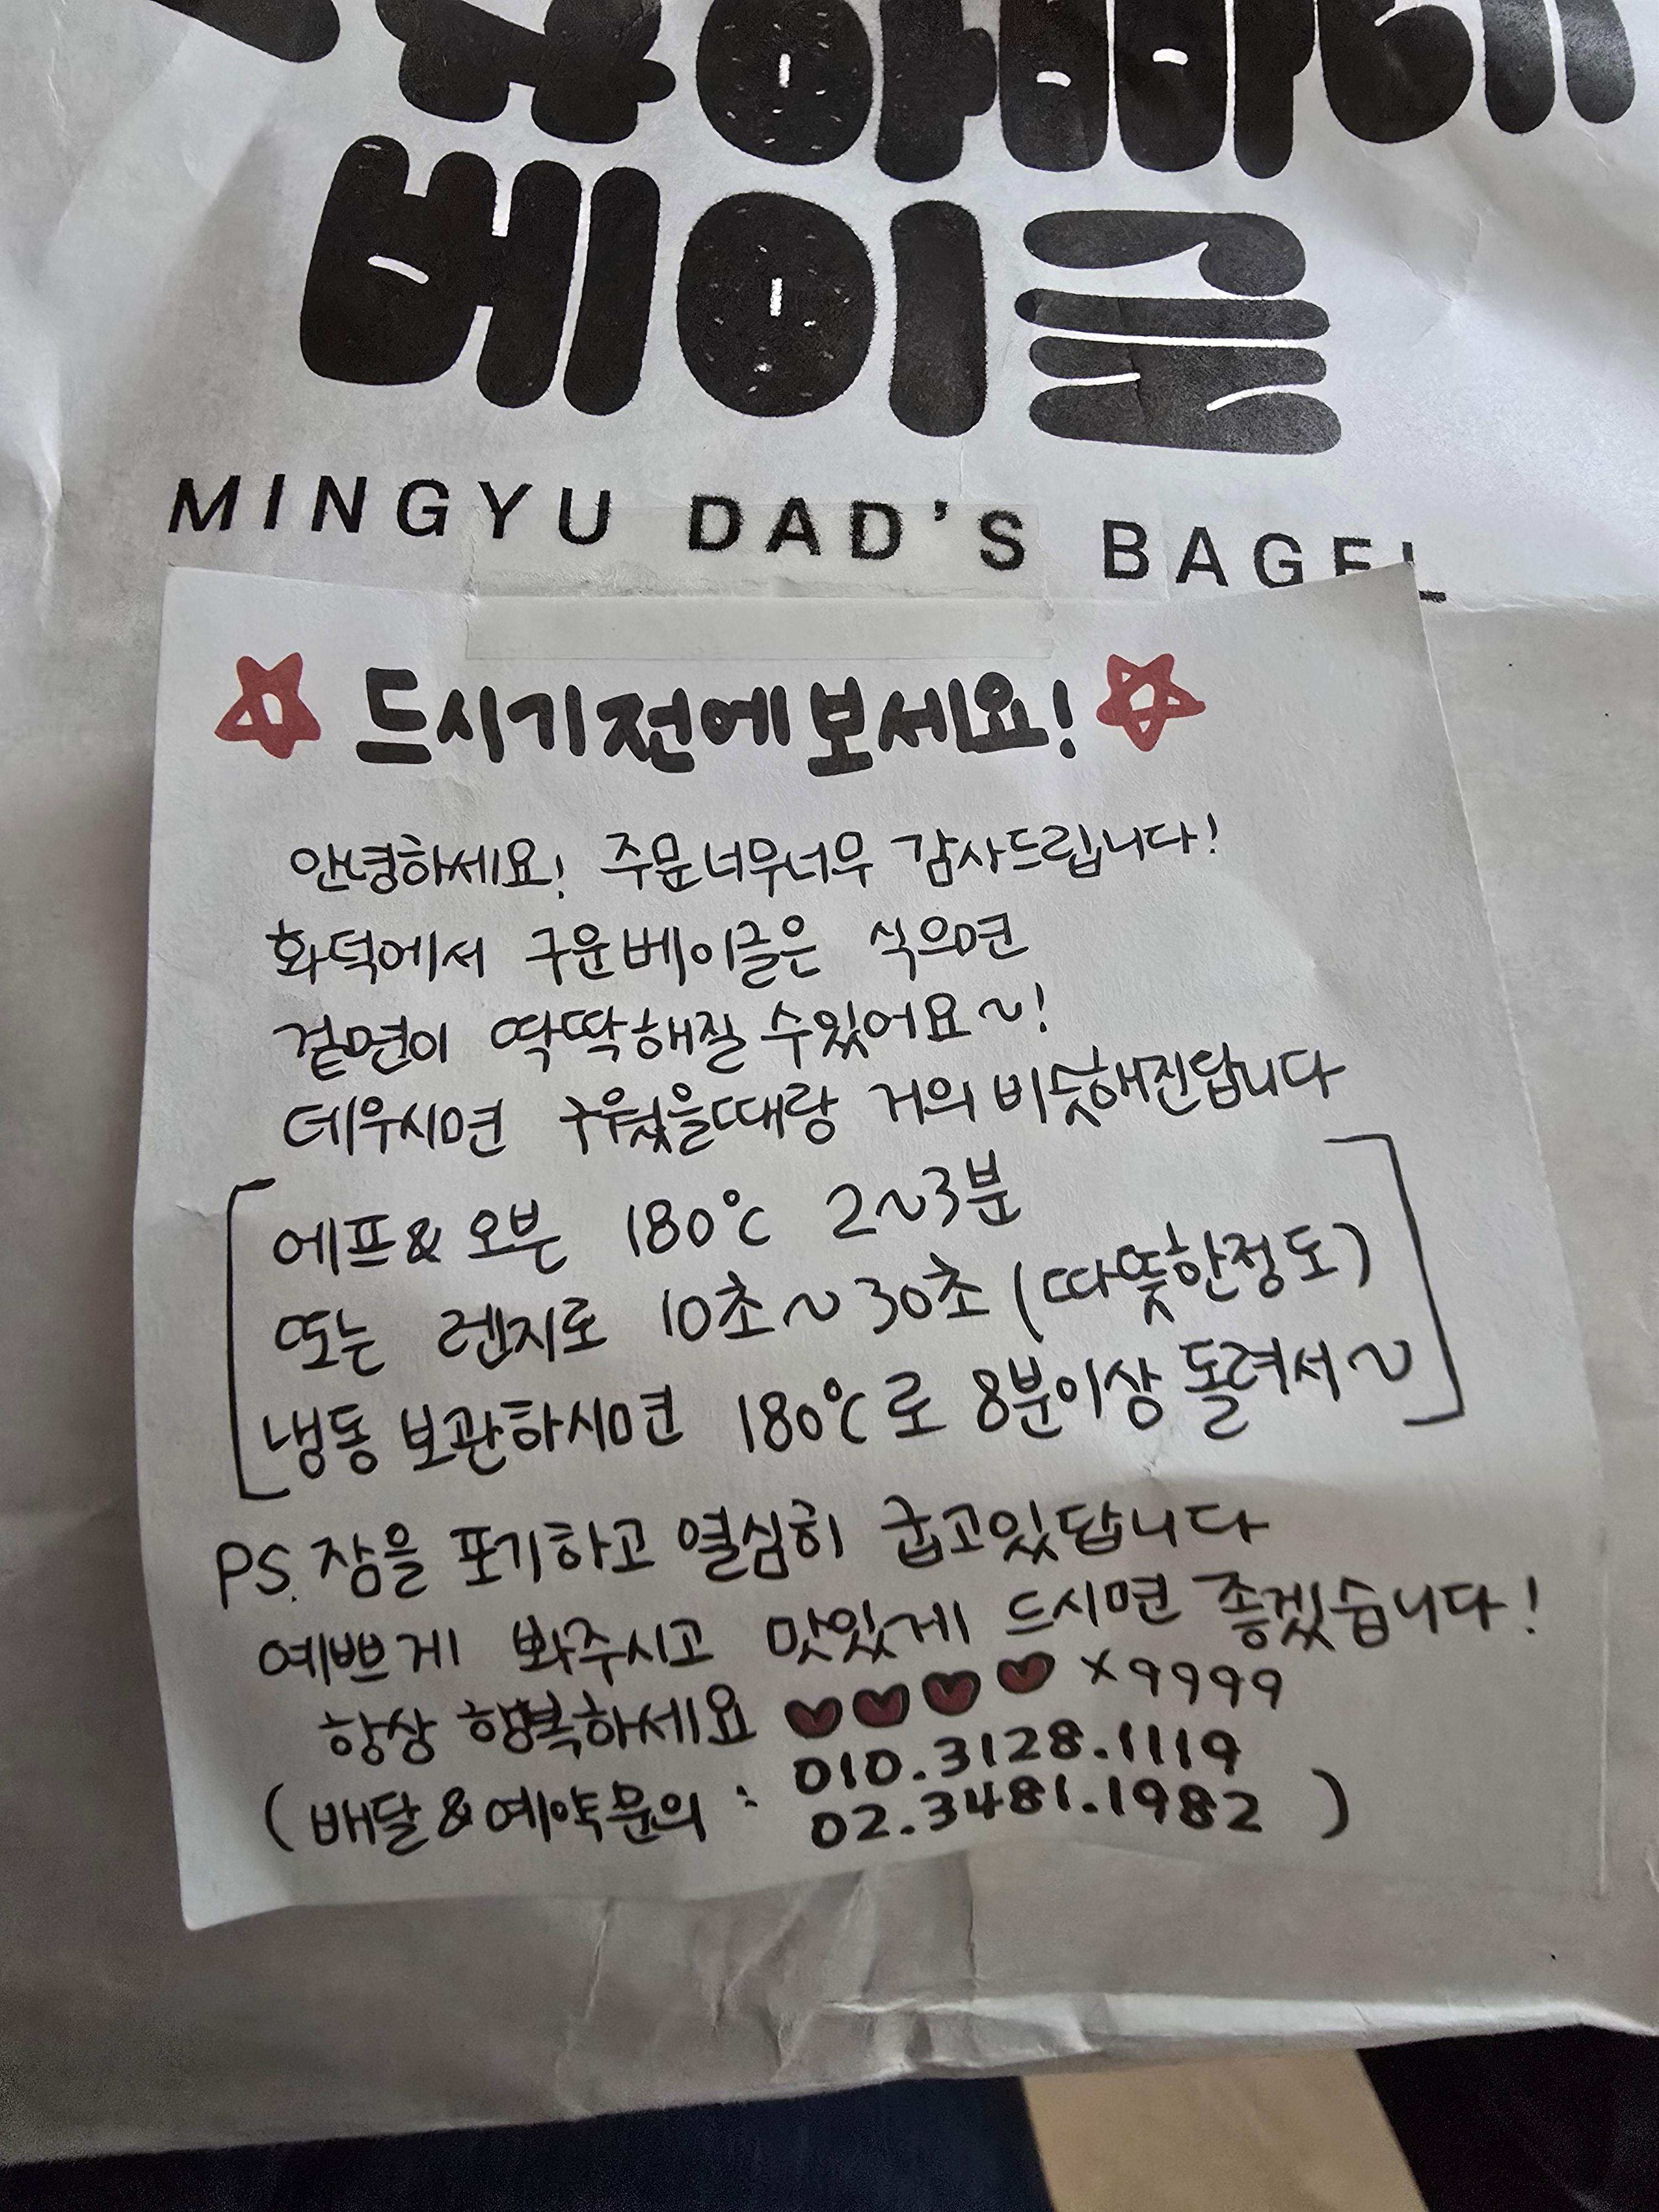 베이글
MINGYU DAD'S BAGEL
드시기전에보세요!
안녕하세요! 주문너무너무 감사드립니다!
화덕에서 구운베이글은 식으면
겉면이 딱딱해질 수있어요~!
데우시면 구웠을때랑 거의 비슷해진답니다
에프& 오븐 180℃ 2~3분
또는 렌지로 10초~30초 (따뜻한정도)
냉동 보관하시면 180℃로 8분이상 돌려서~
PS. 잠을 포기하고 열심히 굽고있답니다
예쁘게 봐주시고 맛있게 드시면 좋겠습니다!
항상 행복하세요 ♥♥♥♥ x9999
010.3128.1119
(배달&예약문의 : 02.3481.1982 )